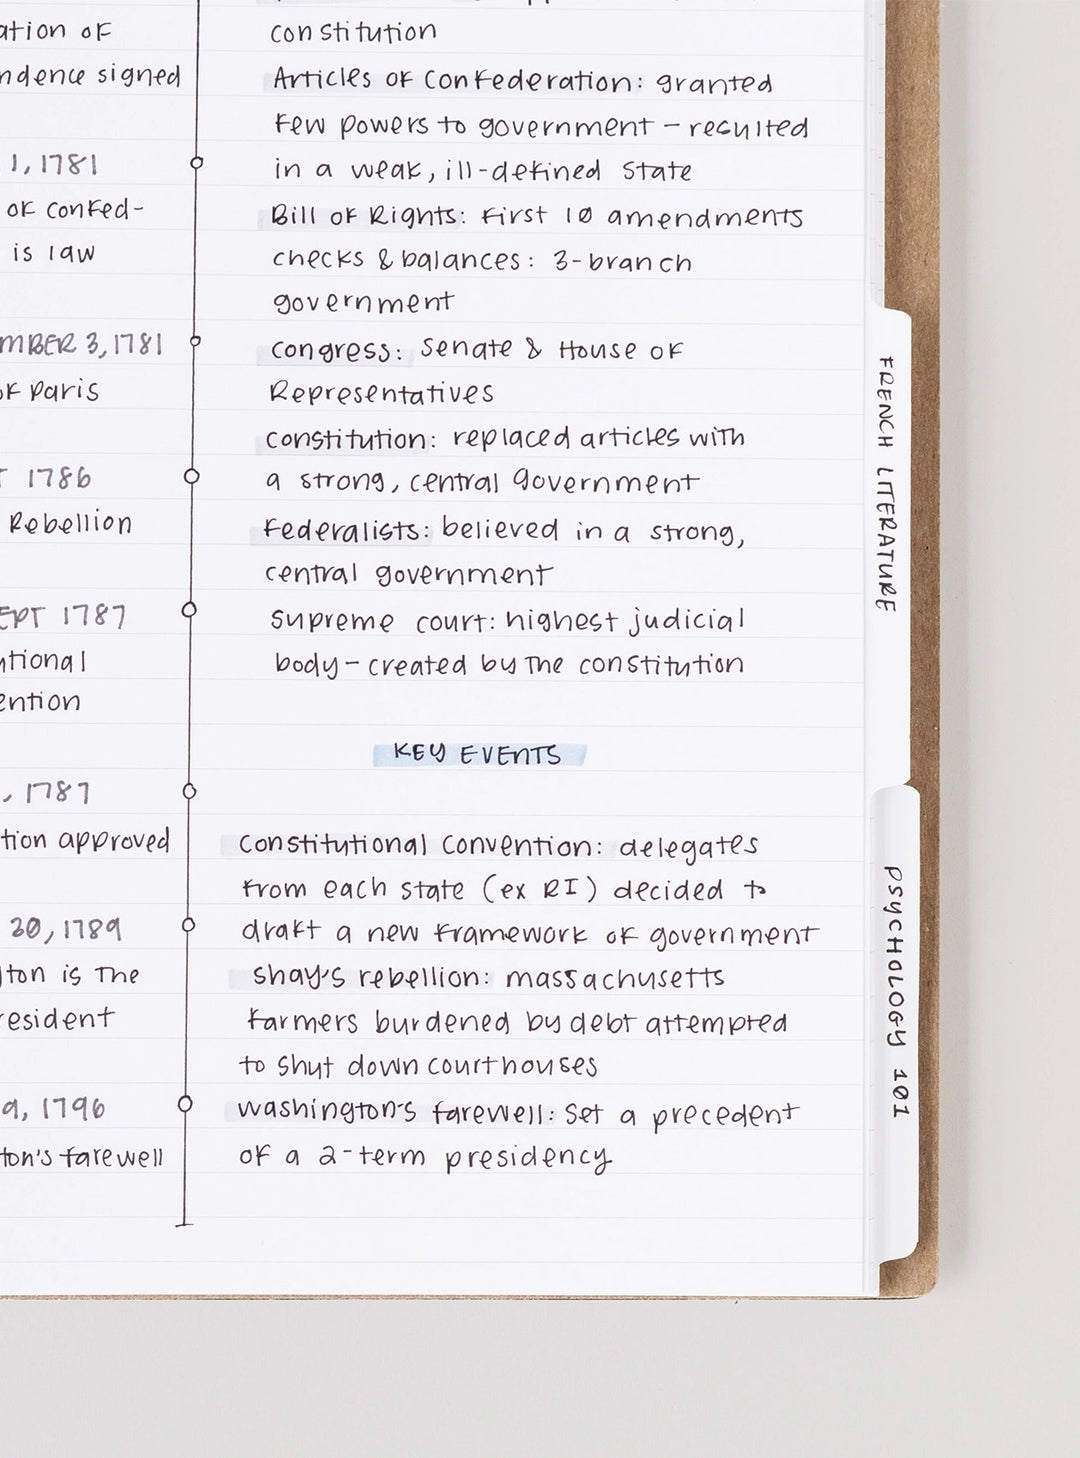 ation of
ndence signed
1, 1781
of confed-
is law
MBER 3, 1781
of Paris
1786
Rebellion
EPT 1787
utional
ention
, 1787
tion approved
30, 1789
ton is the
resident
9, 1796
ton's farewell
constitution
Articles of Confederation: granted
few powers to government - resulted
in a weak, ill-defined state
Bill of Rights: first 10 amendments
checks & balances: 3-branch
government
Congress: Senate & House of
Representatives
Constitution: replaced articles with
a strong, central government
Federalists: believed in a strong,
central government
Supreme court: highest judicial
body - created by the constitution
KEY EVENTS
Constitutional Convention: delegates
from each state (ex RI) decided to
draft a new framework of government
Shay's rebellion: massachusetts
farmers burdened by debt attempted
to shut down courthouses
Washington's farewell: set a precedent
of a 2-term presidency
FRENCH LITERATURE
PSYCHOLOGY 101